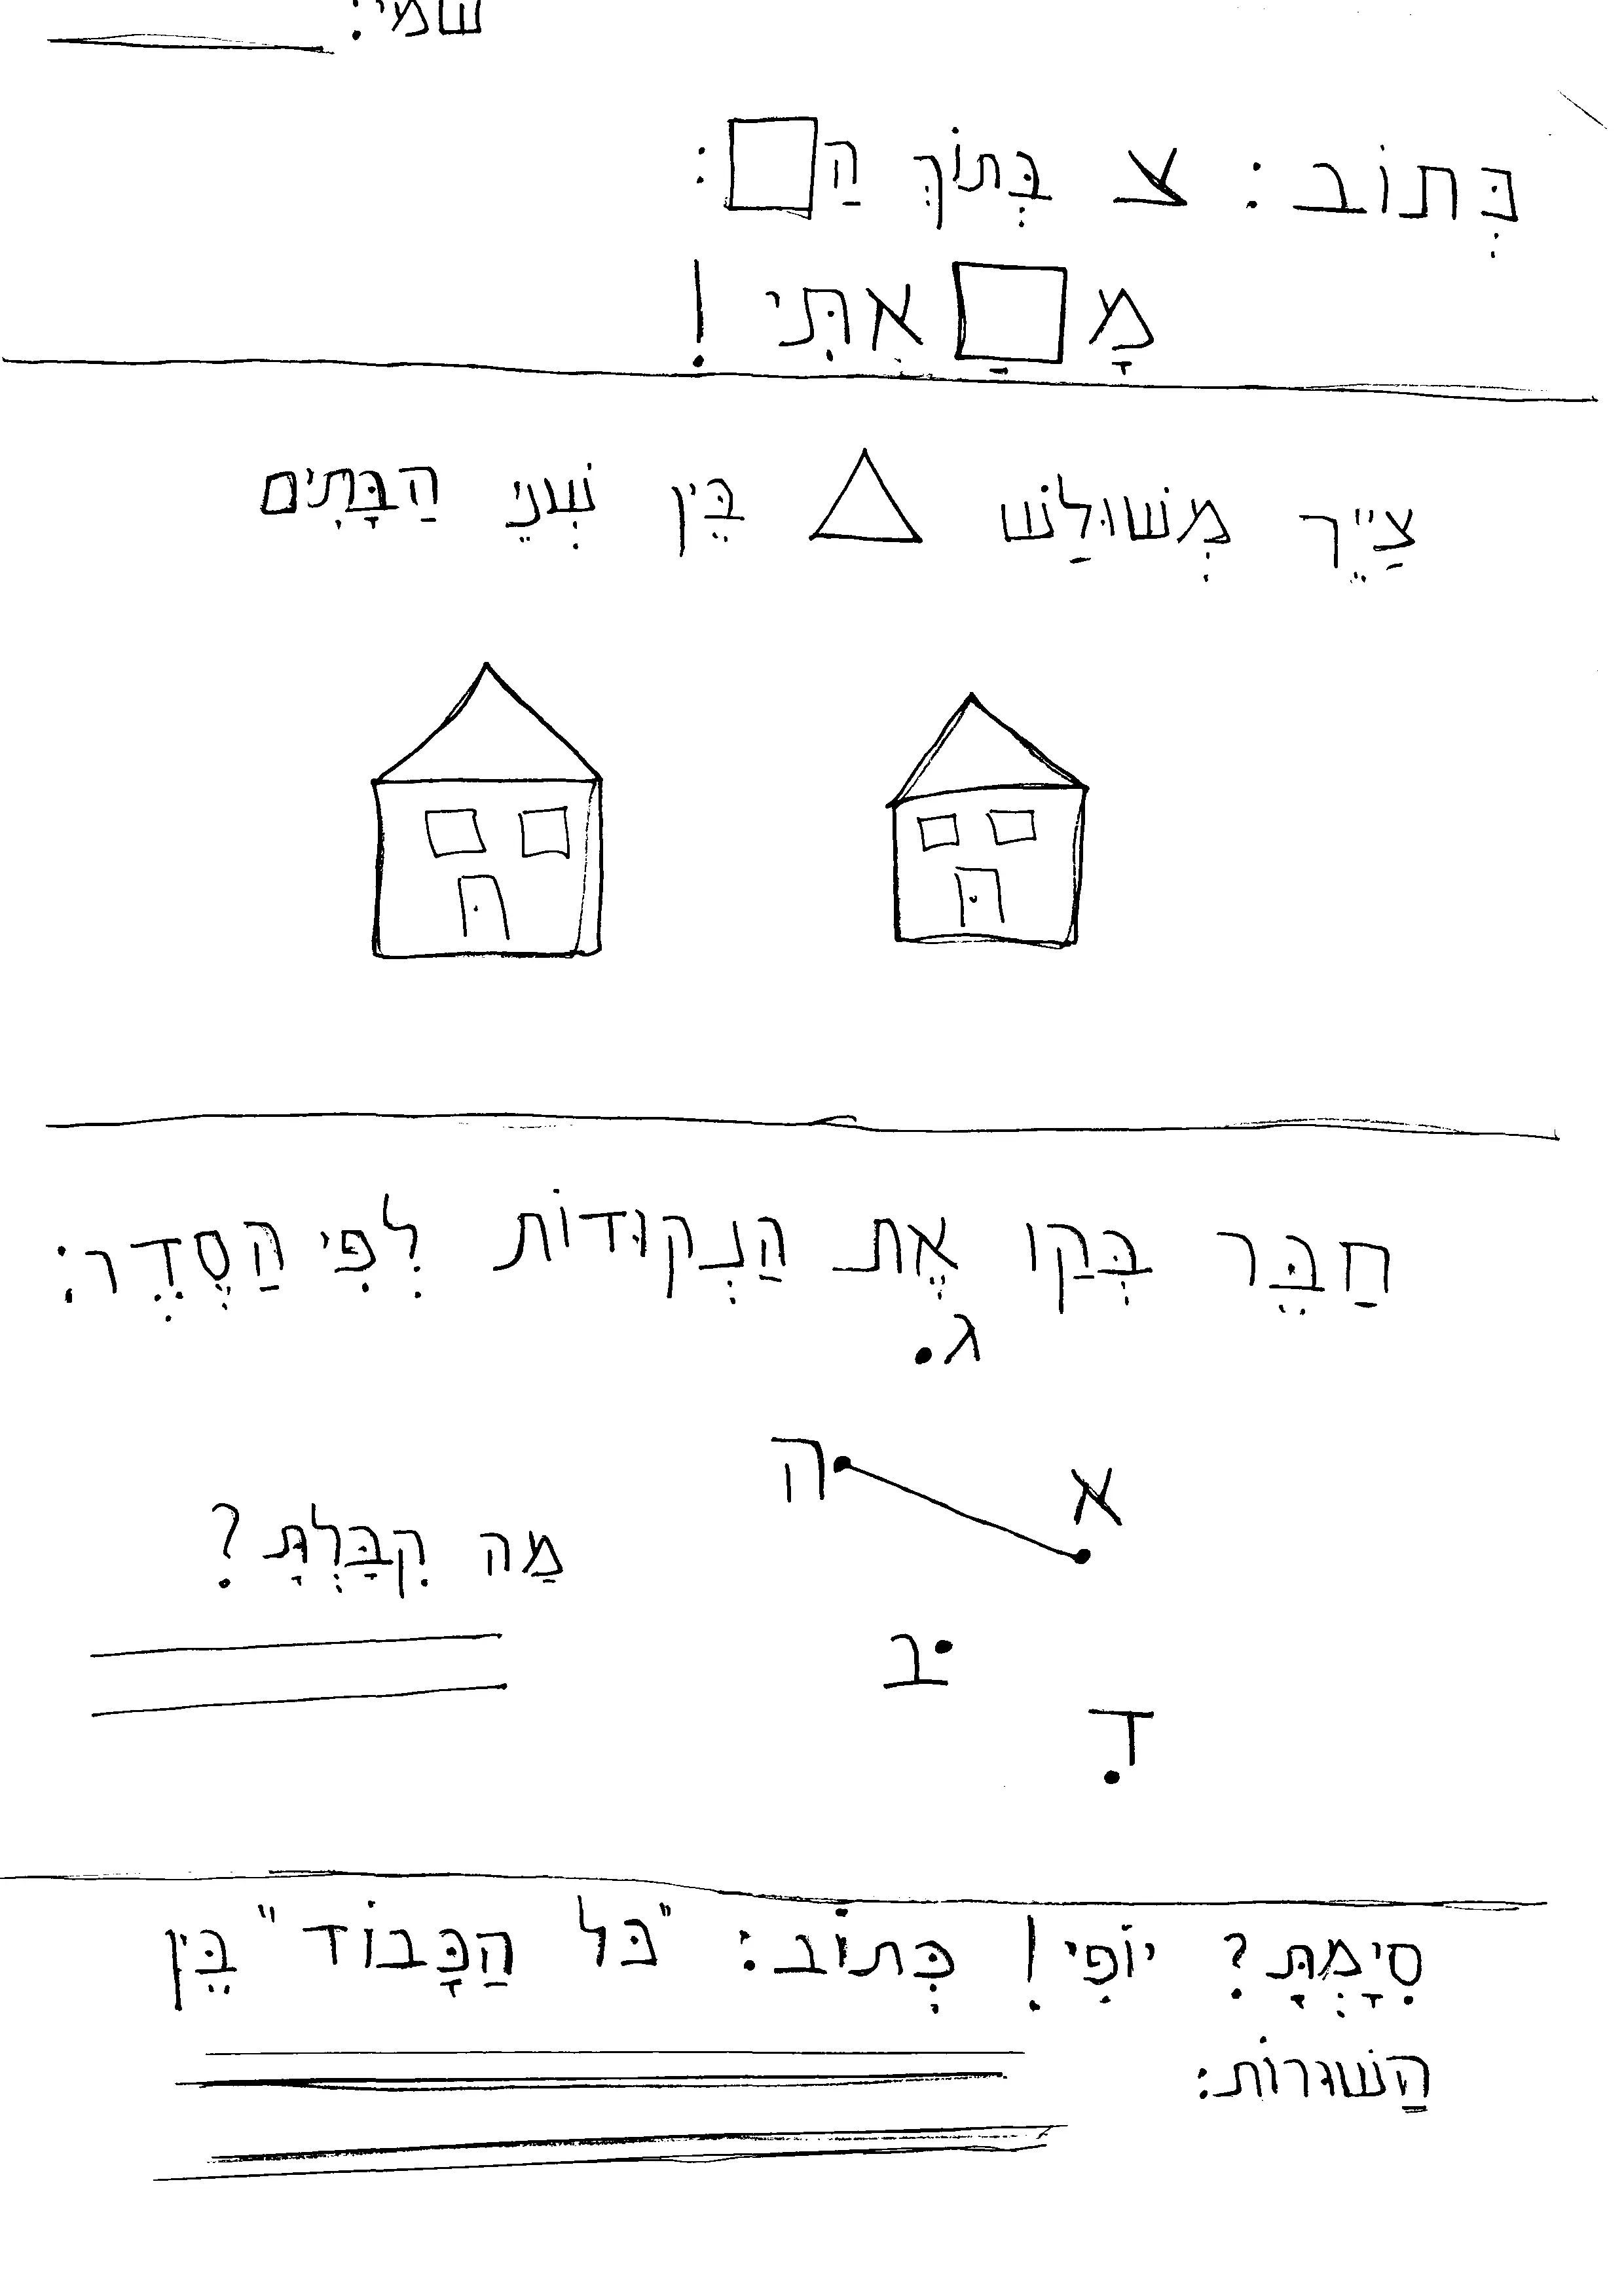 שמי:
כְּתוֹב: צ בְּתוֹךְ הַ□:
מָ□ַאתִּי!
צַיֵּיר מְשׁוּלַשׁ △ בֵּין שְׁנֵי הַבָּתִּים
חַבֵּר בְּקַו אֶת הַנְקוּדוֹת לְפִי הַסֶדֶר:
ג
ה
א
מַה קִבָּלְתָּ?
ב
ד
סִיָמְתָּ? יוֹפִי! כְּתוֹב: "כּל הַכָּבוֹד" בֵּין
הַשּׁוּרוֹת: